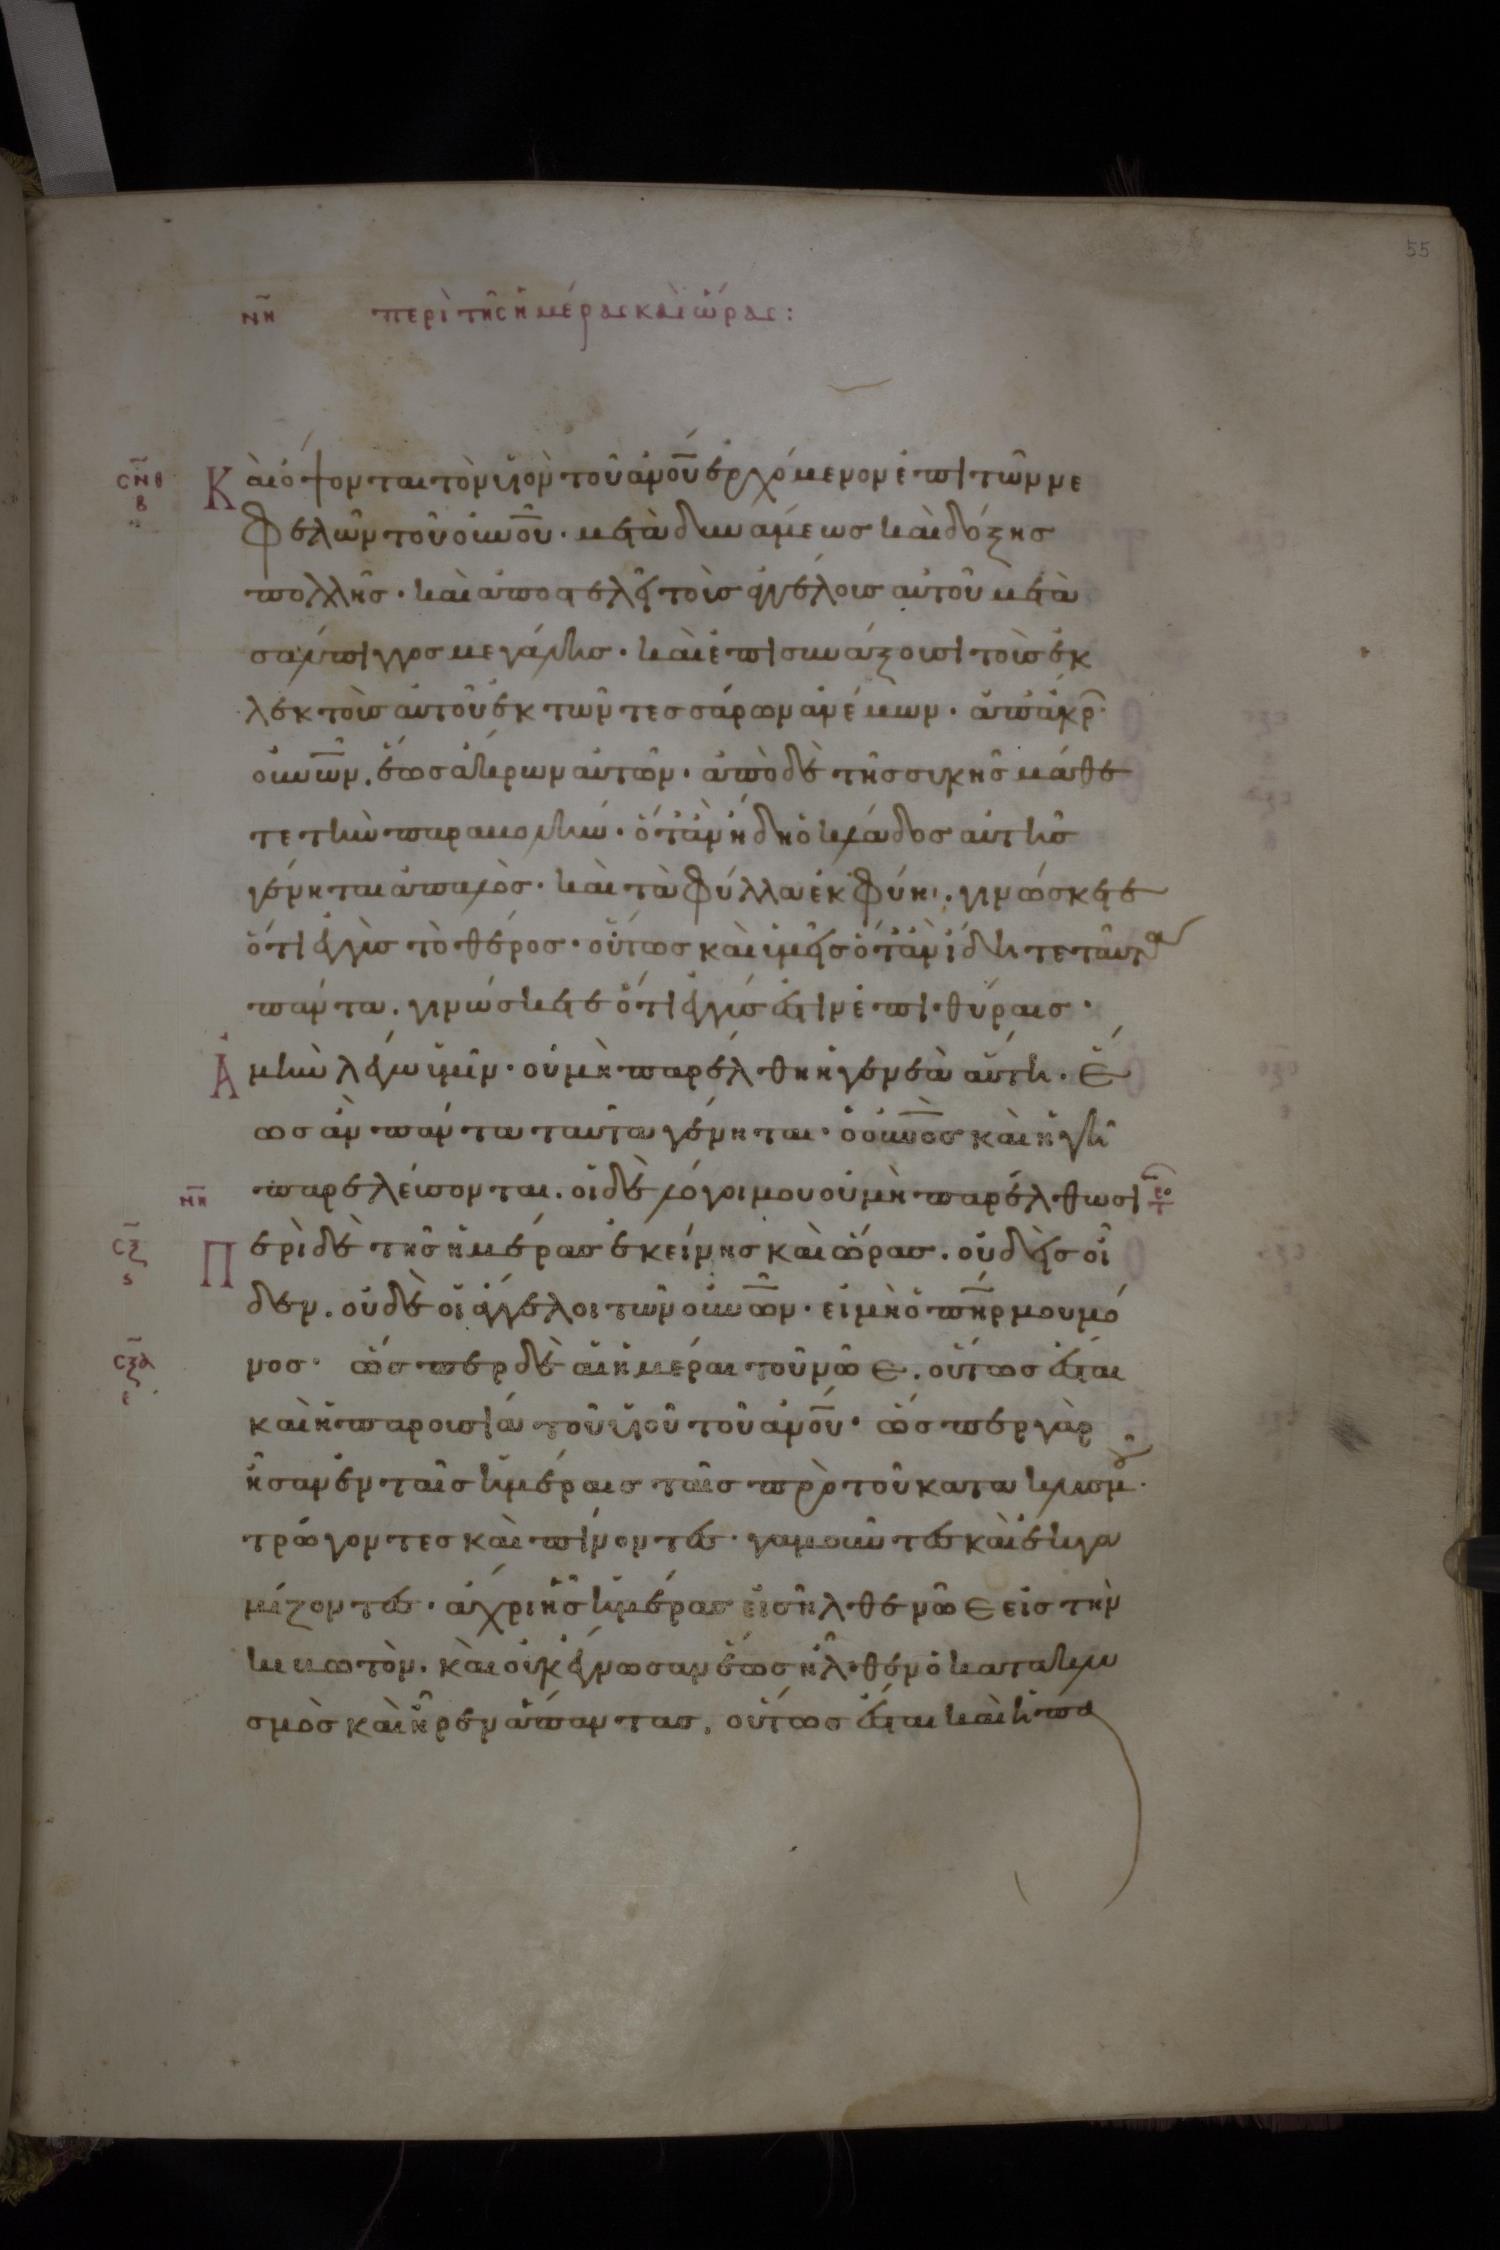 55
νη περὶ τῆς ἡμέρας καὶ ὥρας:
σνθ
β
Καὶ ὄψονται τὸν υἱὸν τοῦ ἀνου ἐρχόμενον ἐπὶ τῶν νε
φελῶν τοῦ οὐνου· μετὰ δυνάμεως καὶ δόξης
πολλῆς· καὶ ἀποστελεῖ τοὺς ἀγγέλους αὐτοῦ μετὰ
σάλπιγγος μεγάλης· καὶ ἐπισυνάξουσι τοὺς ἐκ
λεκτοὺς αὐτοῦ ἐκ τῶν τεσσάρων ἀνέμων· ἀπ' ἄκρ
οὐνων. ἕως ἄκρων αὐτῶν· ἀπὸ δὲ τῆς συκῆς μάθε
τε τὴν παραβολήν· ὅταν ἤδη ὁ κλάδος αὐτῆς
γένηται ἁπαλὸς· καὶ τὰ φύλλα ἐκφύηι. γινώσκετε
ὅτι ἐγγὺς τὸ θέρος· οὕτως καὶ ὑμεῖς ὅταν ἴδητε ταῦτα
πάντα. γινώσκετε ὅτι ἐγγύς ἐστιν ἐπὶ θύραις·
Ἀμὴν λέγω ὑμῖν· οὐ μὴ παρέλθη ἡ γενεὰ αὕτη. ἕ
ως ἂν πάντα ταῦτα γένηται· ὁ οὐνος καὶ ἡ γῆ
παρελεύσονται. οἱ δὲ λόγοι μου οὐ μὴ παρέλθωσι
νη
σξ
ϛ
Περὶ δὲ τῆς ἡμέρας ἐκείνης καὶ ὥρας. οὐδεὶς οἶ
δεν. οὐδὲ οἱ ἄγγελοι τῶν οὐνων· εἰ μὴ ὁ πηρ μου μό
σξα
ε
νος· ὥσπερ δὲ αἱ ἡμέραι τοῦ νῶε. οὕτως ἔσται
καὶ ἡ παρουσία τοῦ υἱοῦ τοῦ ἀνου· ὥσπερ γὰρ
ἦσαν ἐν ταῖς ἡμέραις ταῖς πρὸ τοῦ κατακλυσμοῦ·
τρώγοντες καὶ πίνοντες· γαμοῦντες καὶ ἐκγα
μίζοντες· ἄχρι ἧς ἡμέρας εἰσῆλθε νῶε εἰς τὴν
κιβωτόν. καὶ οὐκ ἔγνωσαν ἕως ἦλθεν ὁ κατακλυ
σμὸς καὶ ἦρεν ἅπαντας. οὕτως ἔσται καὶ ἡ πα